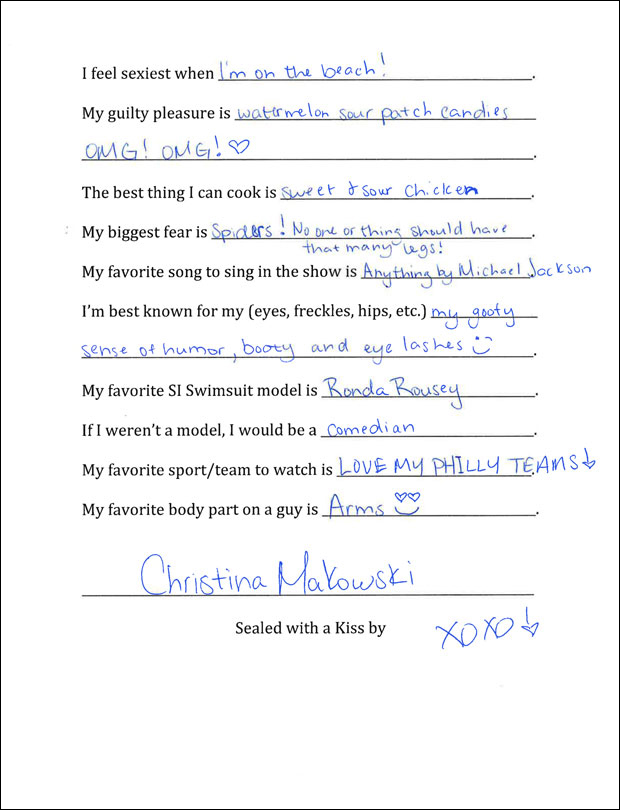 I feel sexiest when I'm on the beach!.
My guilty pleasure is watermelon sour patch candies
OMG! OMG! ♡.
The best thing I can cook is sweet & sour chicken.
My biggest fear is Spiders! No one or thing should have
that many legs!
My favorite song to sing in the show is Anything by Michael Jackson
I'm best known for my (eyes, freckles, hips, etc.) my goofy
sense of humor, booty and eye lashes.
My favorite SI Swimsuit model is Ronda Rousey.
If I weren't a model, I would be a comedian.
My favorite sport/team to watch is LOVE MY PHILLY TEAMS!.
My favorite body part on a guy is Arms.
Christina Makowski
Sealed with a Kiss by XOXO!